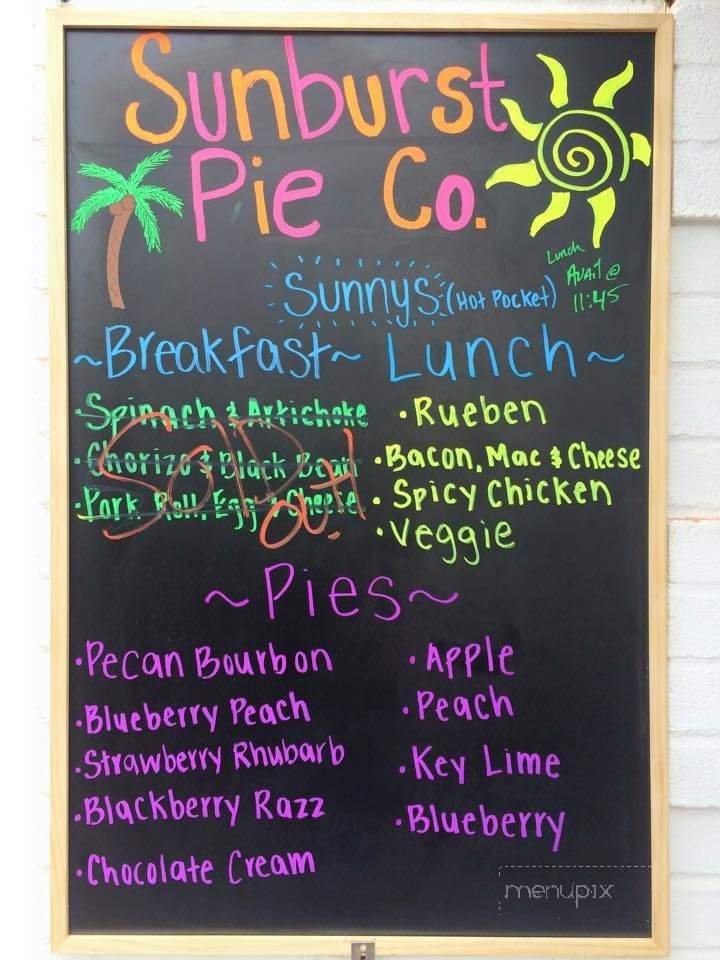 Sunburst
Pie Co.
Lunch
Avail @
11:45
Sunnys (Hot Pocket)
~Breakfast~ Lunch~
·Spinach & Artichoke
·Chorizo & Black Bean
·Pork Roll, Egg & Cheese
SOLD
Out!
·Rueben
·Bacon, Mac & Cheese
·Spicy Chicken
·Veggie
~Pies~
·Pecan Bourbon
·Blueberry Peach
·Strawberry Rhubarb
·Blackberry Razz
·Chocolate Cream
·Apple
·Peach
·Key Lime
·Blueberry
menupix